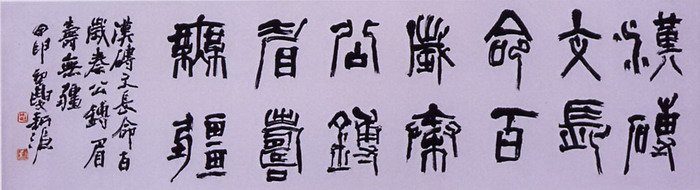 漢磚
文長
命百
歲秦
公鎛
眉壽
無疆
漢磚文長命百
歲秦公鎛眉
壽無疆